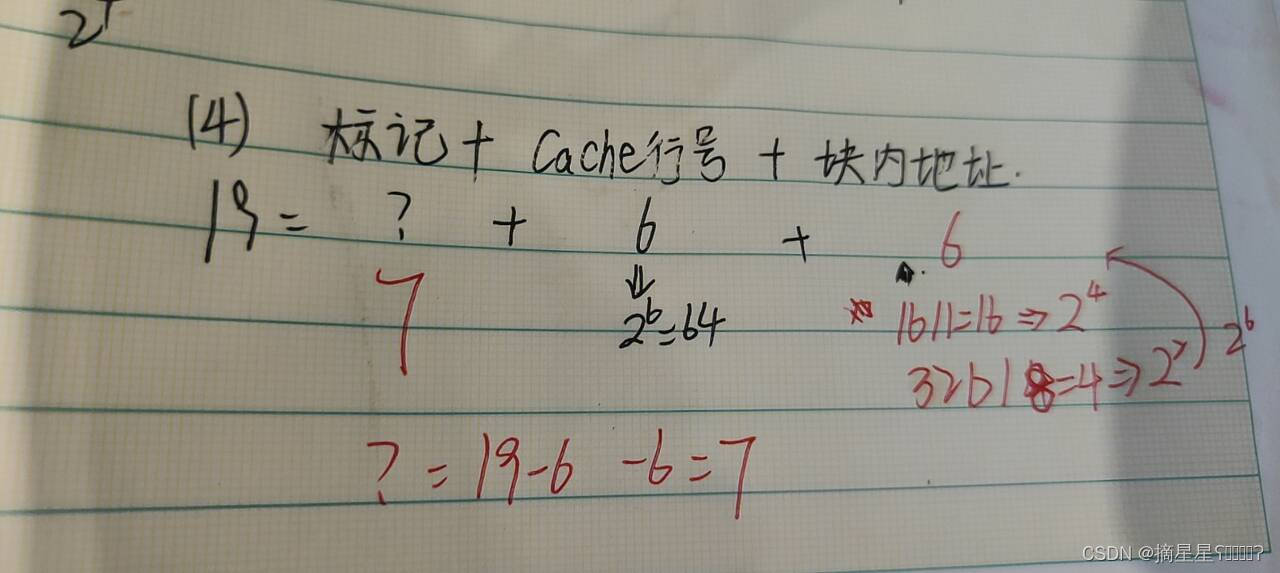 (4) 标记 + Cache行号 + 块内地址.
19 = ? + 6 + 6
7
2^6=64
16/1=16 ⇒ 2^4
32b/8=4 ⇒ 2^2
2^6
? = 19-6 -6=7
CSDN @摘星星